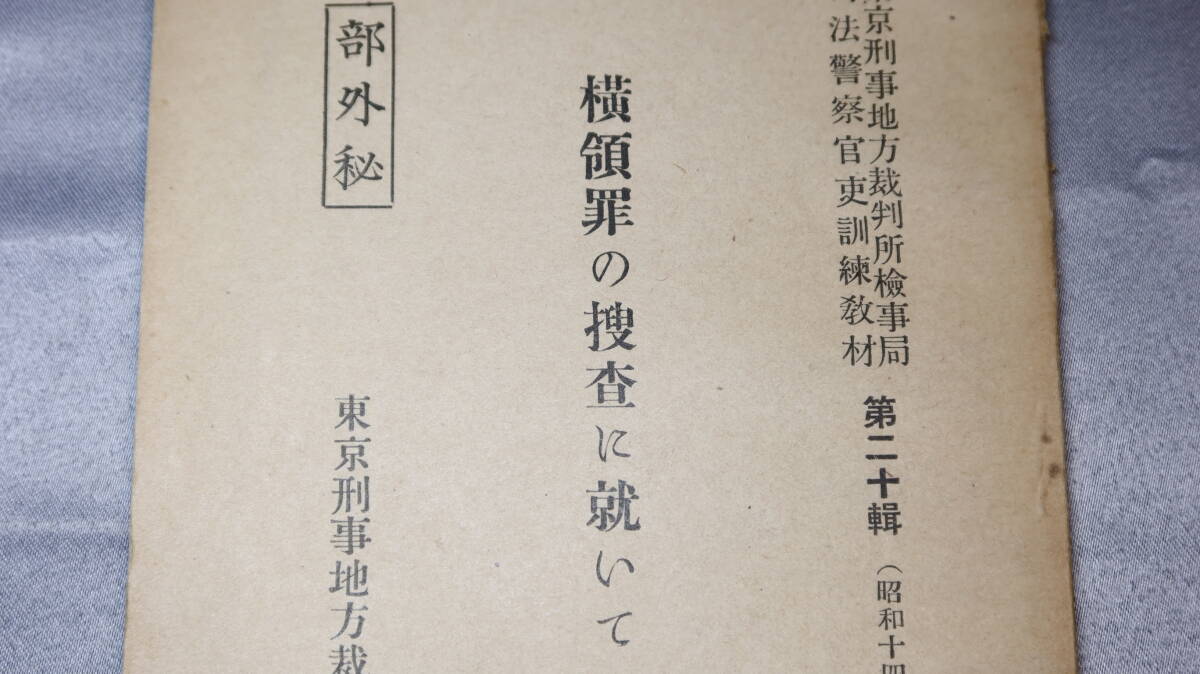 東京刑事地方裁判所檢事局
司法警察官吏訓練敎材
第二十輯（昭和十四
橫領罪の搜査に就いて
部外秘
東京刑事地方裁